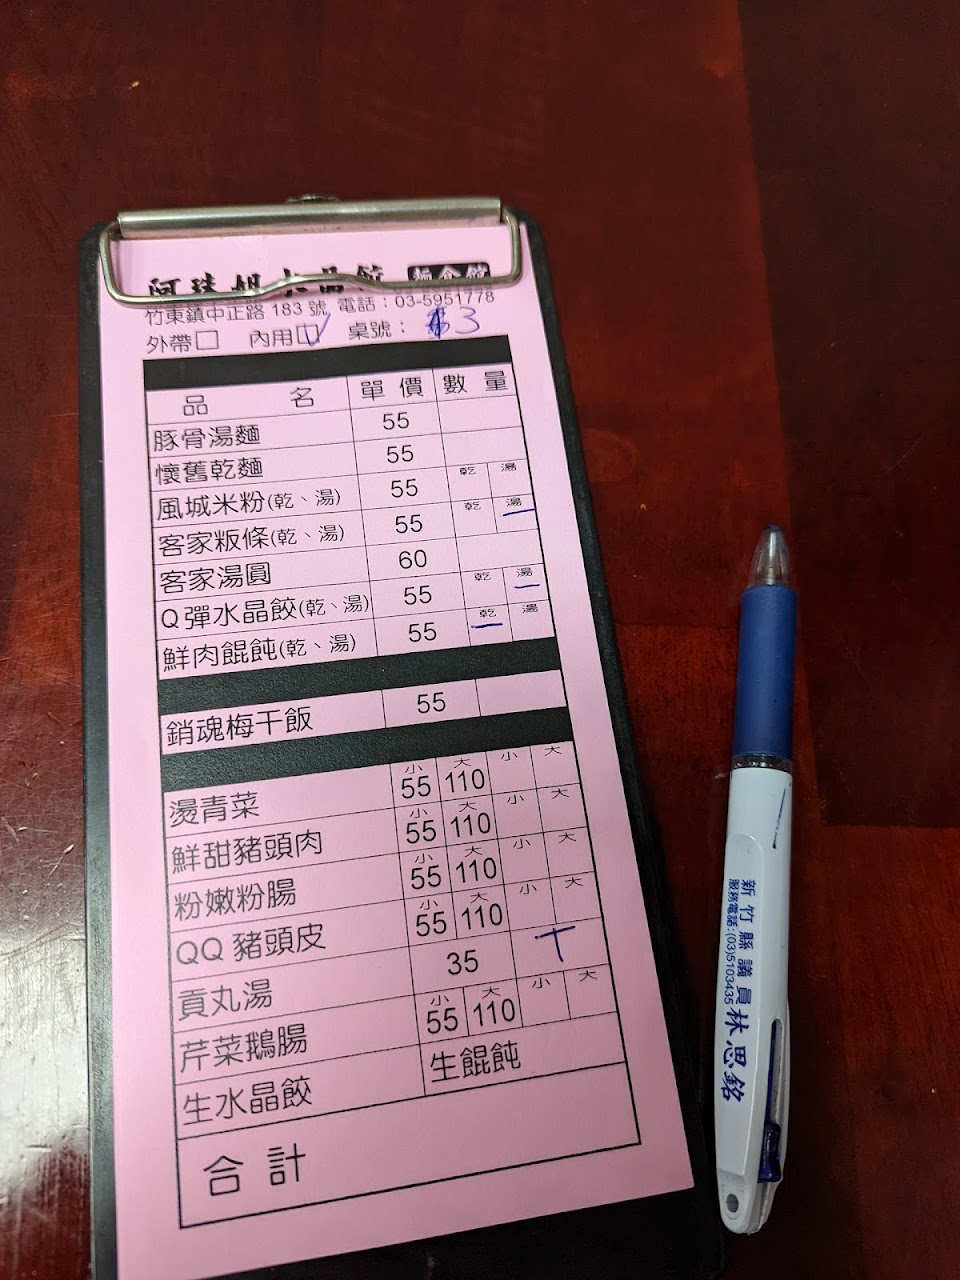 阿珠姐水晶餃 麵食館
竹東鎮中正路 183 號 電話：03-5951778
外帶□ 內用□V 桌號： 3
品 名 單 價 數 量
豚骨湯麵 55
懷舊乾麵 55
風城米粉(乾、湯) 55 乾 湯
客家粄條(乾、湯) 55 乾 湯
客家湯圓 60
Q彈水晶餃(乾、湯) 55 乾 湯
鮮肉餛飩(乾、湯) 55 乾 湯
銷魂梅干飯 55
燙青菜 小 55 大 110 小 大
鮮甜豬頭肉 小 55 大 110 小 大
粉嫩粉腸 小 55 大 110 小 大
QQ 豬頭皮 小 55 大 110 小 大
貢丸湯 35 T
芹菜鵝腸 小 55 大 110 小 大
生水晶餃 生餛飩
合 計
新竹縣議員林思銘
服務電話:(03)5103435